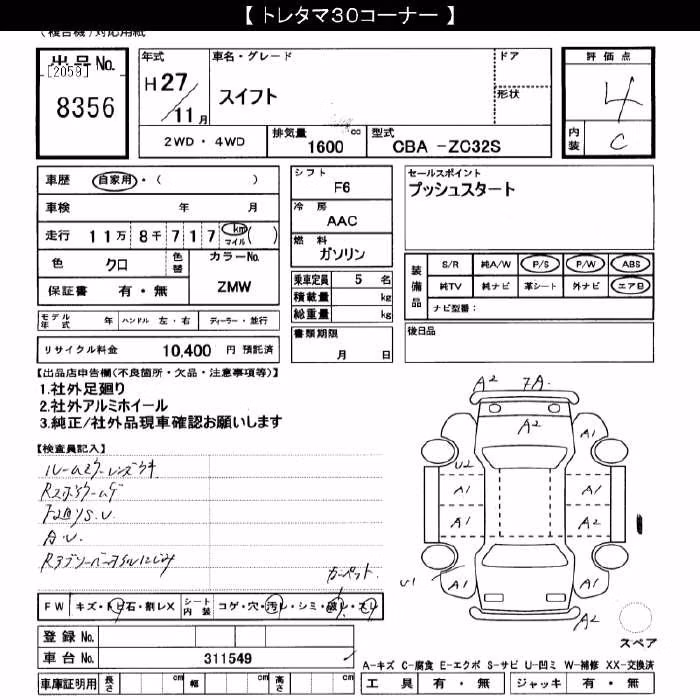 【 トレタマ30コーナー 】
(複合機)対応用紙
出品 No.
[2059]
8356
年式
H 27
11 月
車名・グレード
スイフト
ドア
形状
評価点
4
内装
C
2WD ・ 4WD
排気量
1600 cc
型式
CBA -ZC32S
車歴 自家用 ・ ( )
車検 年 月
走行 11万 8千 717 km マイル ( )
色 クロ 色替
カラーNo.
ZMW
保証書 有 ・ 無
モデル年式 年 ハンドル 左 ・ 右 ディーラー ・ 並行
リサイクル料金 10,400 円 預託済
シフト
F6
冷房
AAC
燃料
ガソリン
乗車定員 5 名
積載量 kg
総重量 kg
書類期限
月 日
セールスポイント
プッシュスタート
装備品
S/R 純A/W P/S P/W ABS
純TV 純ナビ 革シート 外ナビ エアB
ナビ型番:
後日品
【出品店申告欄(不良箇所・欠品・注意事項等)】
1.社外足廻り
2.社外アルミホイール
3.純正/社外品現車確認お願いします
【検査員記入】
ルームミラーレンズキキ
A.U.
カーペット
FW キズ・トビ石・割レX シート内装 コゲ・穴・汚レ・シミ・破レ・スレ
登録 No.
車台 No. 311549
車庫証明用 長さ cm 幅 cm 高さ cm
A2 7A.
A2
A1
A1
U2
A1 A1
A1 A2
U1 A1 A1
A2
スペア
A-キズ C-腐食 E-エクボ S-サビ U-凹ミ W-補修 XX-交換済
工具 有 ・ 無 ジャッキ 有 ・ 無